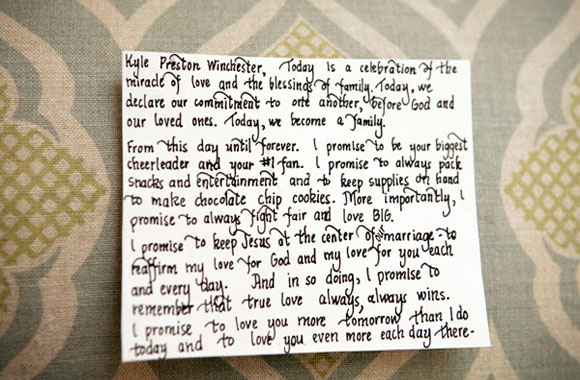 Kyle Preston Winchester, Today is a celebration of the
miracle of love and the blessings of family. Today, we
declare our commitment to one another, before God and
our loved ones. Today, we become a family.
From this day until forever. I promise to be your biggest
cheerleader and your #1 fan. I promise to always pack
snacks and entertainment and to keep supplies on hand
to make chocolate chip cookies. More importantly, I
promise to always fight fair and love BIG.
I promise to keep Jesus at the center of marriage to
reaffirm my love for God and my love for you each
and every day. And in so doing, I promise to
remember that true love always, always wins.
I promise to love you more tomorrow than I do
today and to love you even more each day there-